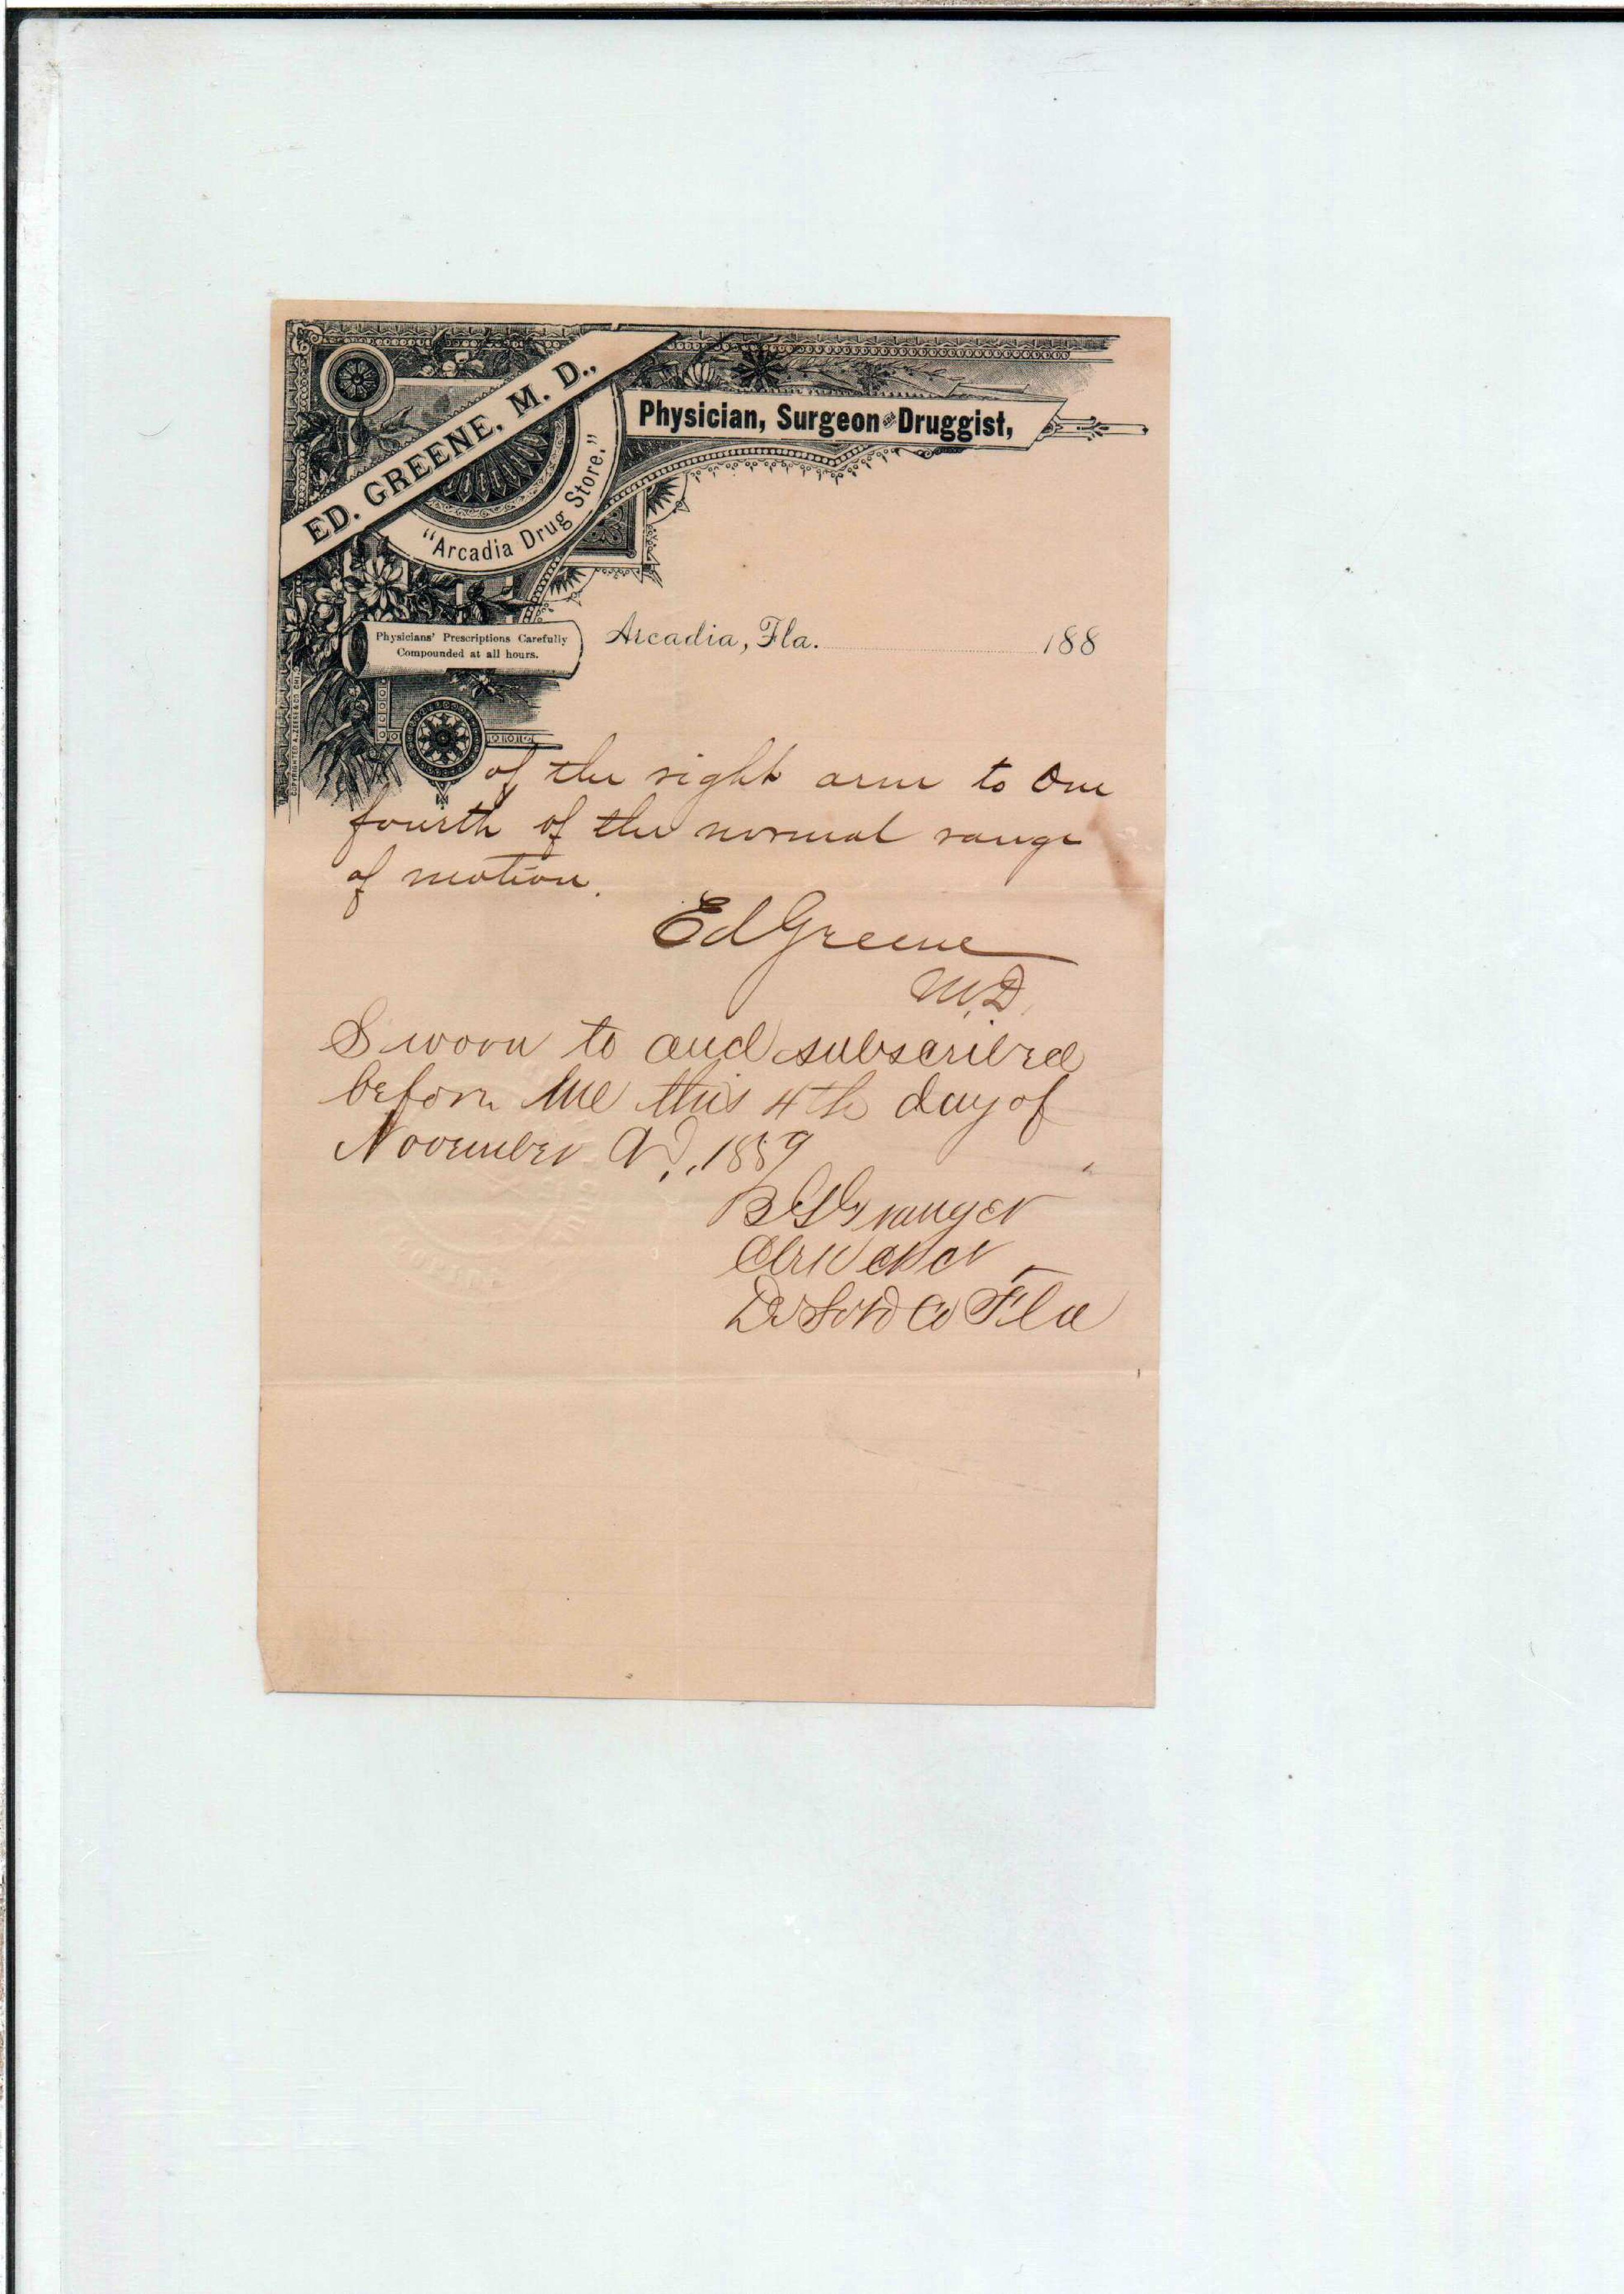 ED. GREENE, M. D.,
"Arcadia Drug Store."
Physician, Surgeon and Druggist,
Physicians' Prescriptions Carefully
Compounded at all hours.
Arcadia, Fla. 188
of the right arm to One
fourth of the normal range
of motion.
Ed Greene
M.D.
Sworn to and subscribed
before me this 4th day of
November AD., 1889
Granger
De Soto Co Fla